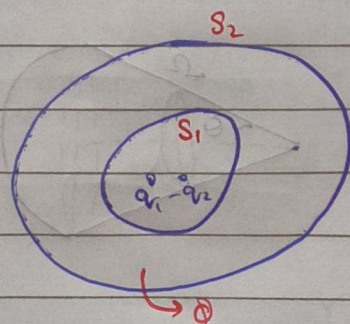 S₂
S₁
q₁ -q₂
Q